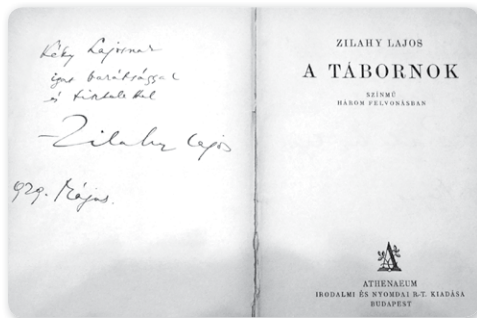 Kéky Lajosnak
igaz barátsággal
és tisztelettel
Zilahy Lajos
929. Május.
ZILAHY LAJOS
A TÁBORNOK
SZÍNMŰ
HÁROM FELVONÁSBAN
A
ATHENAEUM
IRODALMI ÉS NYOMDAI R-T. KIADÁSA
BUDAPEST